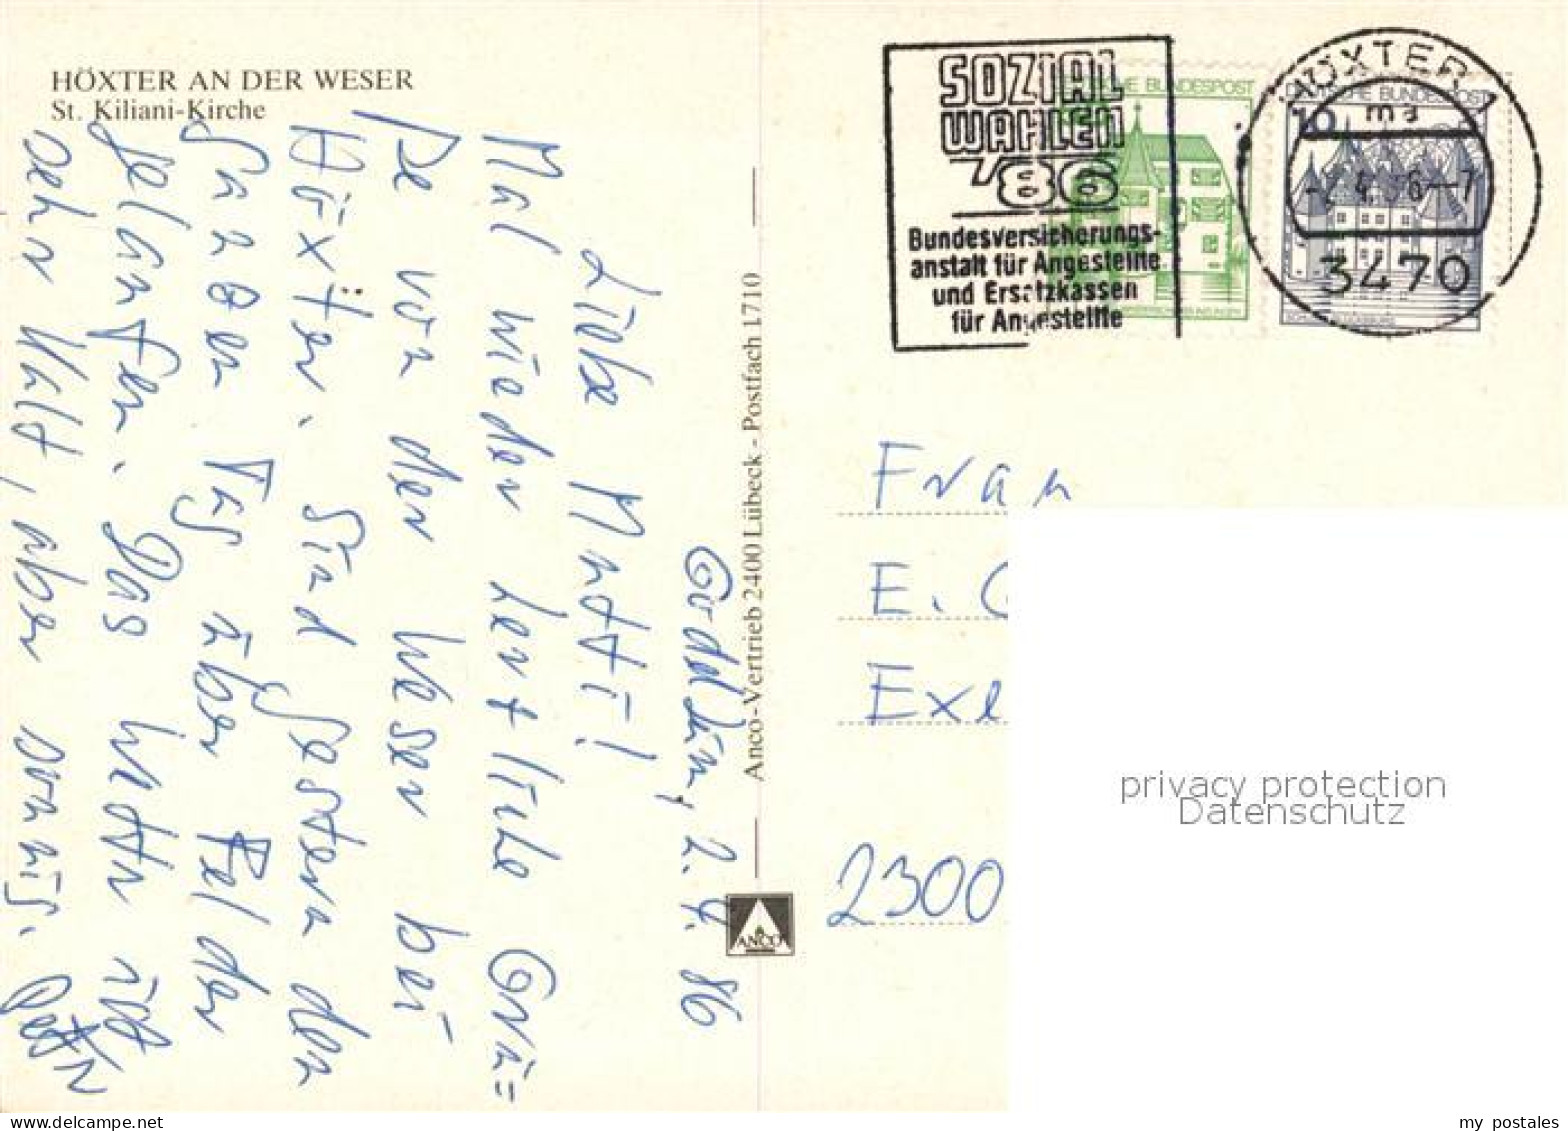 HÖXTER AN DER WESER
St. Kiliani-Kirche
Goddelum, 2.4.86
Liebe Mutti!
Mal wieder herzliche Grü=
ße von der Weser bei
Höxter. Sind gestern den
ganzen Tag über Felder
gelaufen. Das Wetter ist
sehr kalt, aber sonnig.
Anco-Vertrieb 2400 Lübeck - Postfach 1710
ANCO
SOZIAL
WAHLEN
'86
Bundesversicherungs-
anstalt für Angestellte
und Ersatzkassen
für Angestellte
HÖXTER 1
ma
3470
HE BUNDESPOST
10
CHE BUNDESPOST
Frau
E.
Exe
2300
privacy protection
Datenschutz
my postales